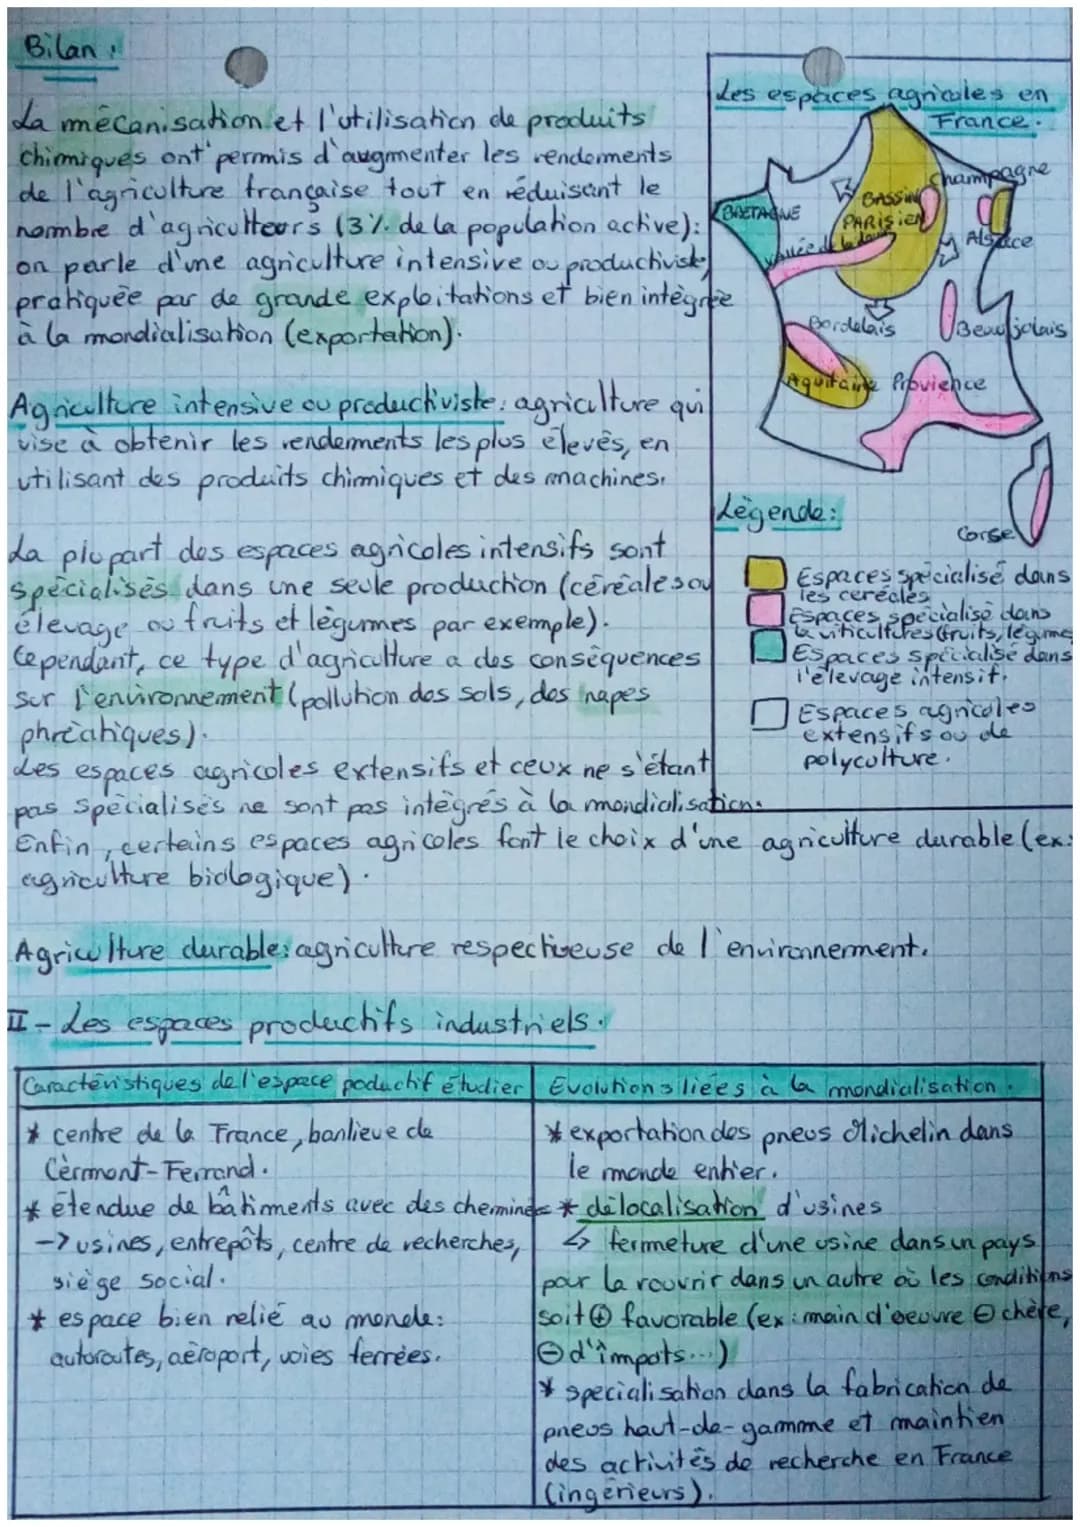 Bilan :
La mécanisation et l'utilisation de produits
chimiques ont permis d'augmenter les rendements
de l'agriculture française tout en réduisant le
nombre d'agriculteurs (3% de la population active):
on parle d'une agriculture intensive ou productiviste,
pratiquée par de grande exploitations et bien intègrée
à la mondialisation (exportation).
Agriculture intensive ou productiviste: agriculture qui
vise à obtenir les rendements les plus élevés, en
utilisant des produits chimiques et des machines.
La plupart des espaces agricoles intensifs sont
spécialisés dans une seule production (céréales ou
élevage ou fruits et lègumes par exemple).
Cependant, ce type d'agriculture a des conséquences
sur l'environnement (pollution des sols, des napes
phréatiques).
Les espaces agricoles extensifs et ceux ne s'étant
pas spécialisés ne sont pas intègrés à la mondialisation.
Enfin, certains espaces agricoles font le choix d'une agriculture durable (ex:
agriculture biologique).
Agriculture durable: agriculture respectueuse de l'environnement.
Les espaces agricoles en
France.
Champagne
BASSIN
PARISIEN
BRETAGNE
Alsace
Vallée de la
Bordelais
Beaujolais
Aquitaine Provience
Corse
Lègende:
Espaces spécialisé dans
les cereales
Espaces spécialisé dans
la viticultures (fruits, légume
Espaces spécialisé dans
l'élevage intensif.
Espaces agricoles
extensifs ou de
polyculture.
II - Les espaces productifs industriels.
Caractéristiques de l'espace poductif étudier
Evolutions liées à la mondialisation.
* centre de la France, banlieue de
Cèrmont-Ferrand.
* étendue de bâtiments avec des cheminées
-> usines, entrepôts, centre de recherches,
siège social.
* espace bien relié au monde:
autoroutes, aèroport, voies ferrées.
* exportation des pneus Michelin dans
le monde entier.
* délocalisation d'usines
↳ fermeture d'une usine dans un pays
pour la rouvrir dans un autre où les conditions
soit ⊕ favorable (ex: main d'oeuvre ⊖ chère,
⊖ d'impots...)
* specialisation dans la fabrication de
pneus haut-de-gamme et maintien
des activités de recherche en France
(ingénieurs).